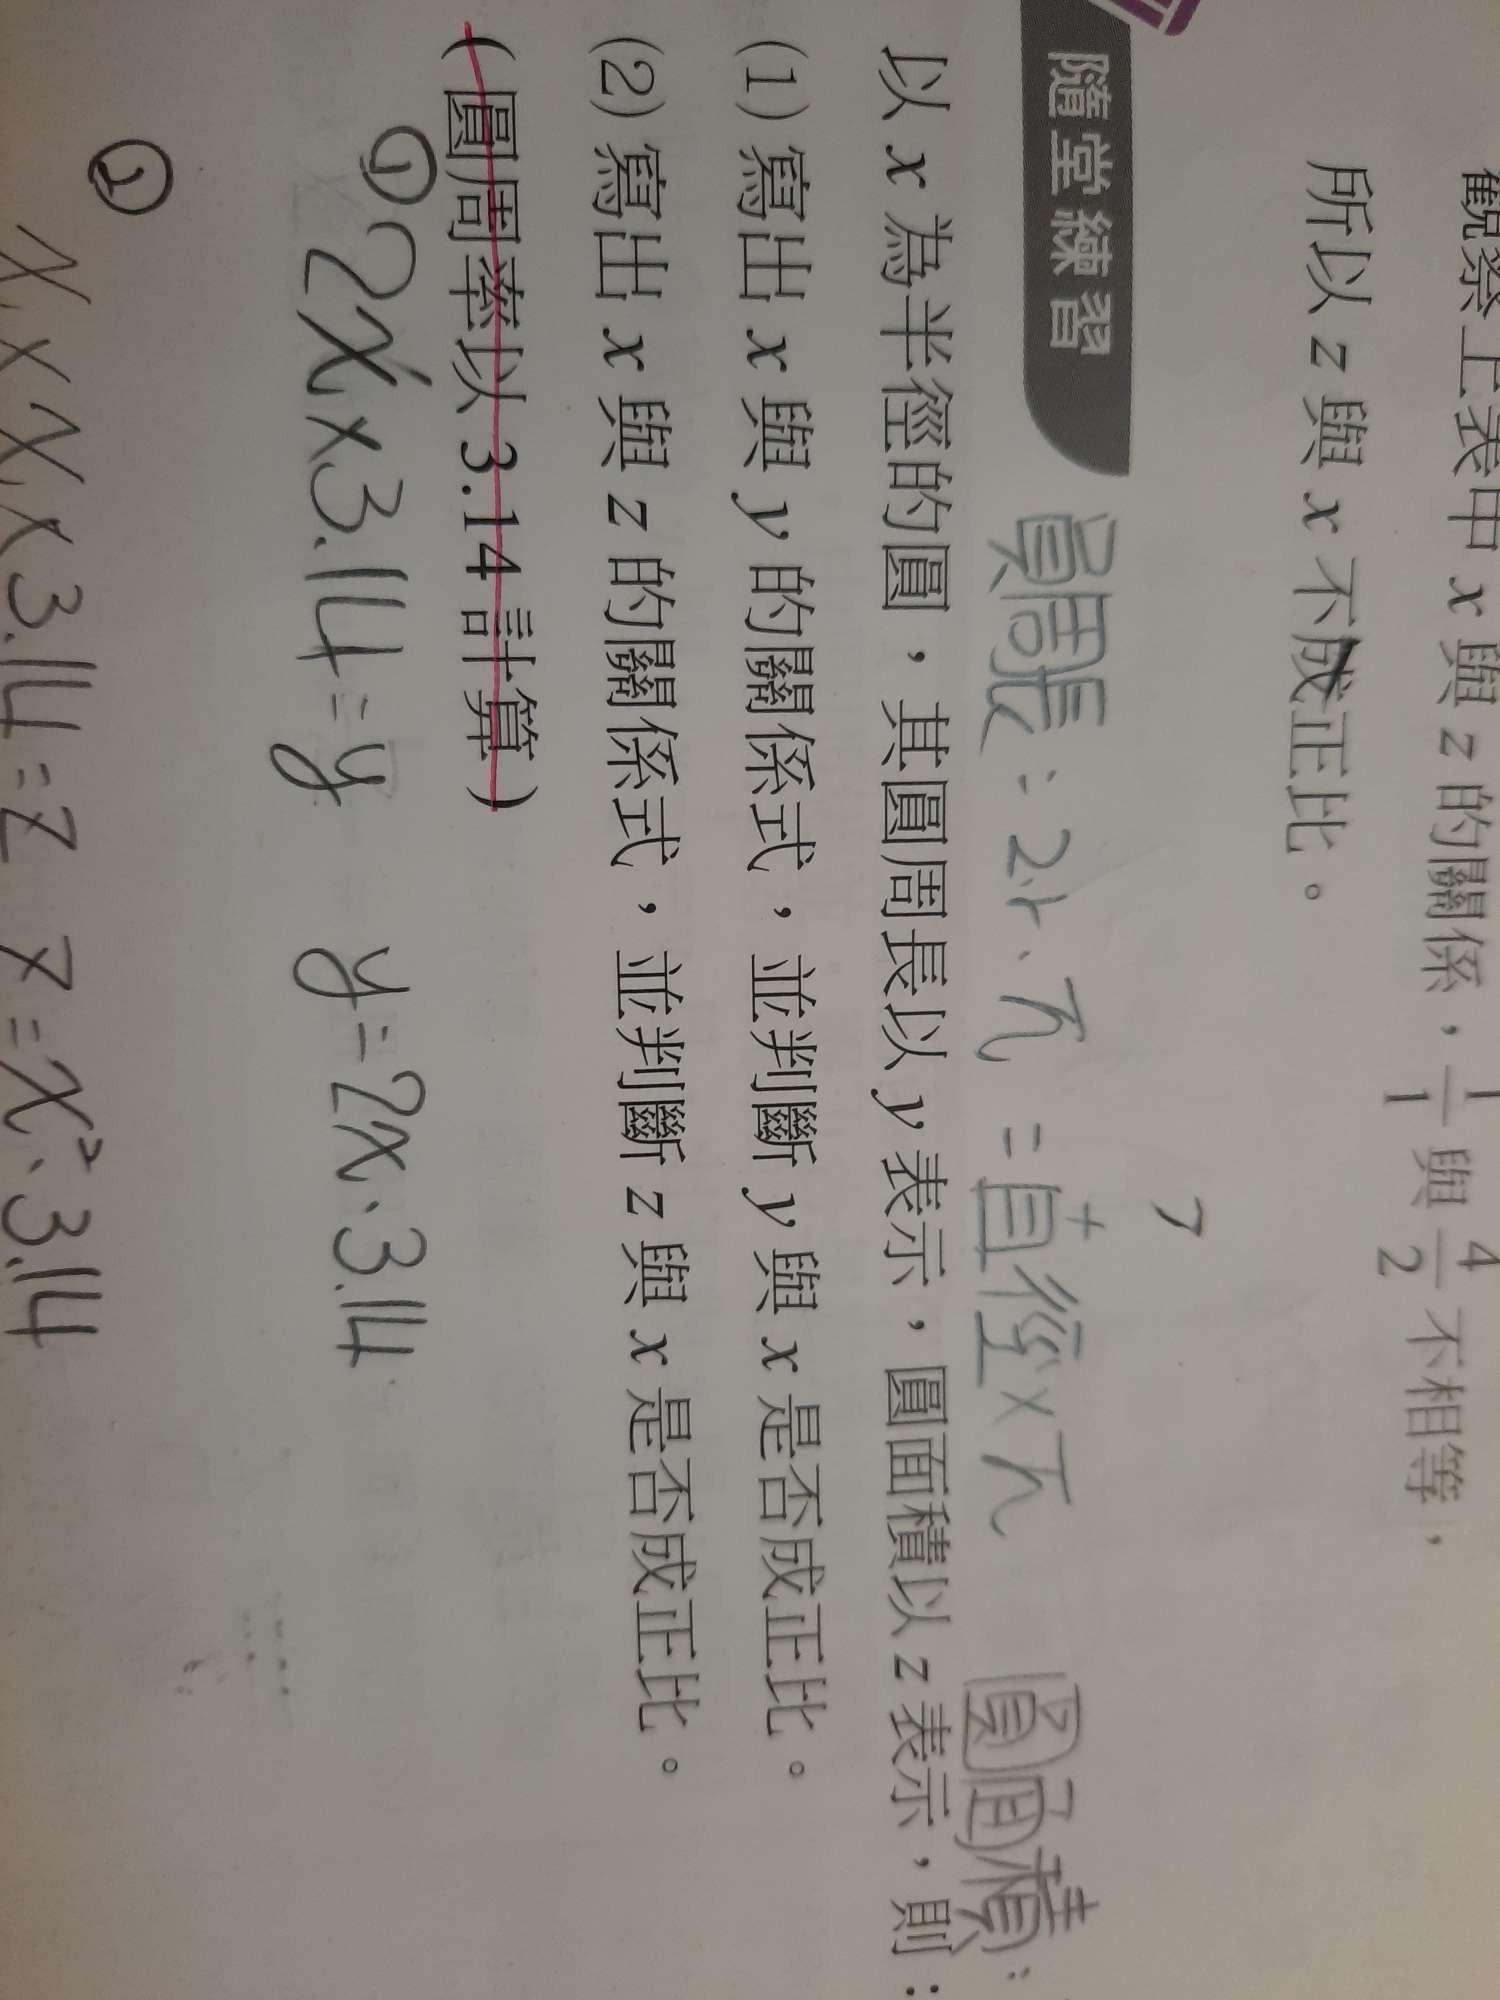 觀察上表中 x 與 z 的關係，1/1 與 4/2 不相等，
所以 z 與 x 不成正比。
隨堂練習
圓周長：2r．π = 直徑×π 圓面積：
以 x 為半徑的圓，其圓周長以 y 表示，圓面積以 z 表示，則：
(1) 寫出 x 與 y 的關係式，並判斷 y 與 x 是否成正比。
(2) 寫出 x 與 z 的關係式，並判斷 z 與 x 是否成正比。
(圓周率以 3.14 計算)
① 2x×3.14=y y=2x．3.14
② x×x×3.14=z z=x²．3.14